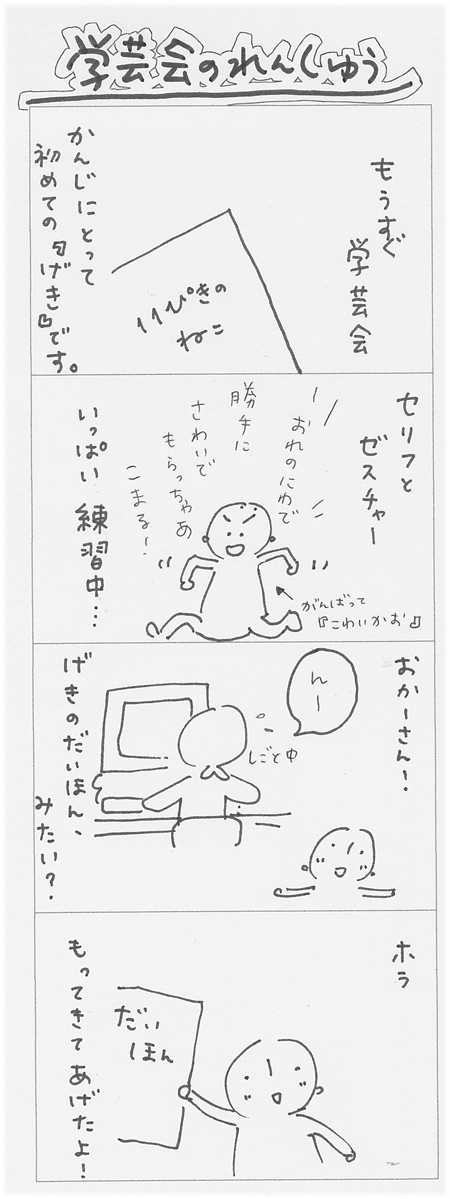 学芸会のれんしゅう
もうすぐ
学芸会
11ぴきの
ねこ
かんじにとって
初めての『げき』です。
セリフと
ゼスチャー
おれのにわで
勝手に
さわいで
もらっちゃあ
こまる!
いっぱい練習中…
がんばって
『こわいかお』
おかーさん!
んー
しごと中
げきのだいほん、
みたい?
ホラ
だい
ほん
もってきてあげたよ!